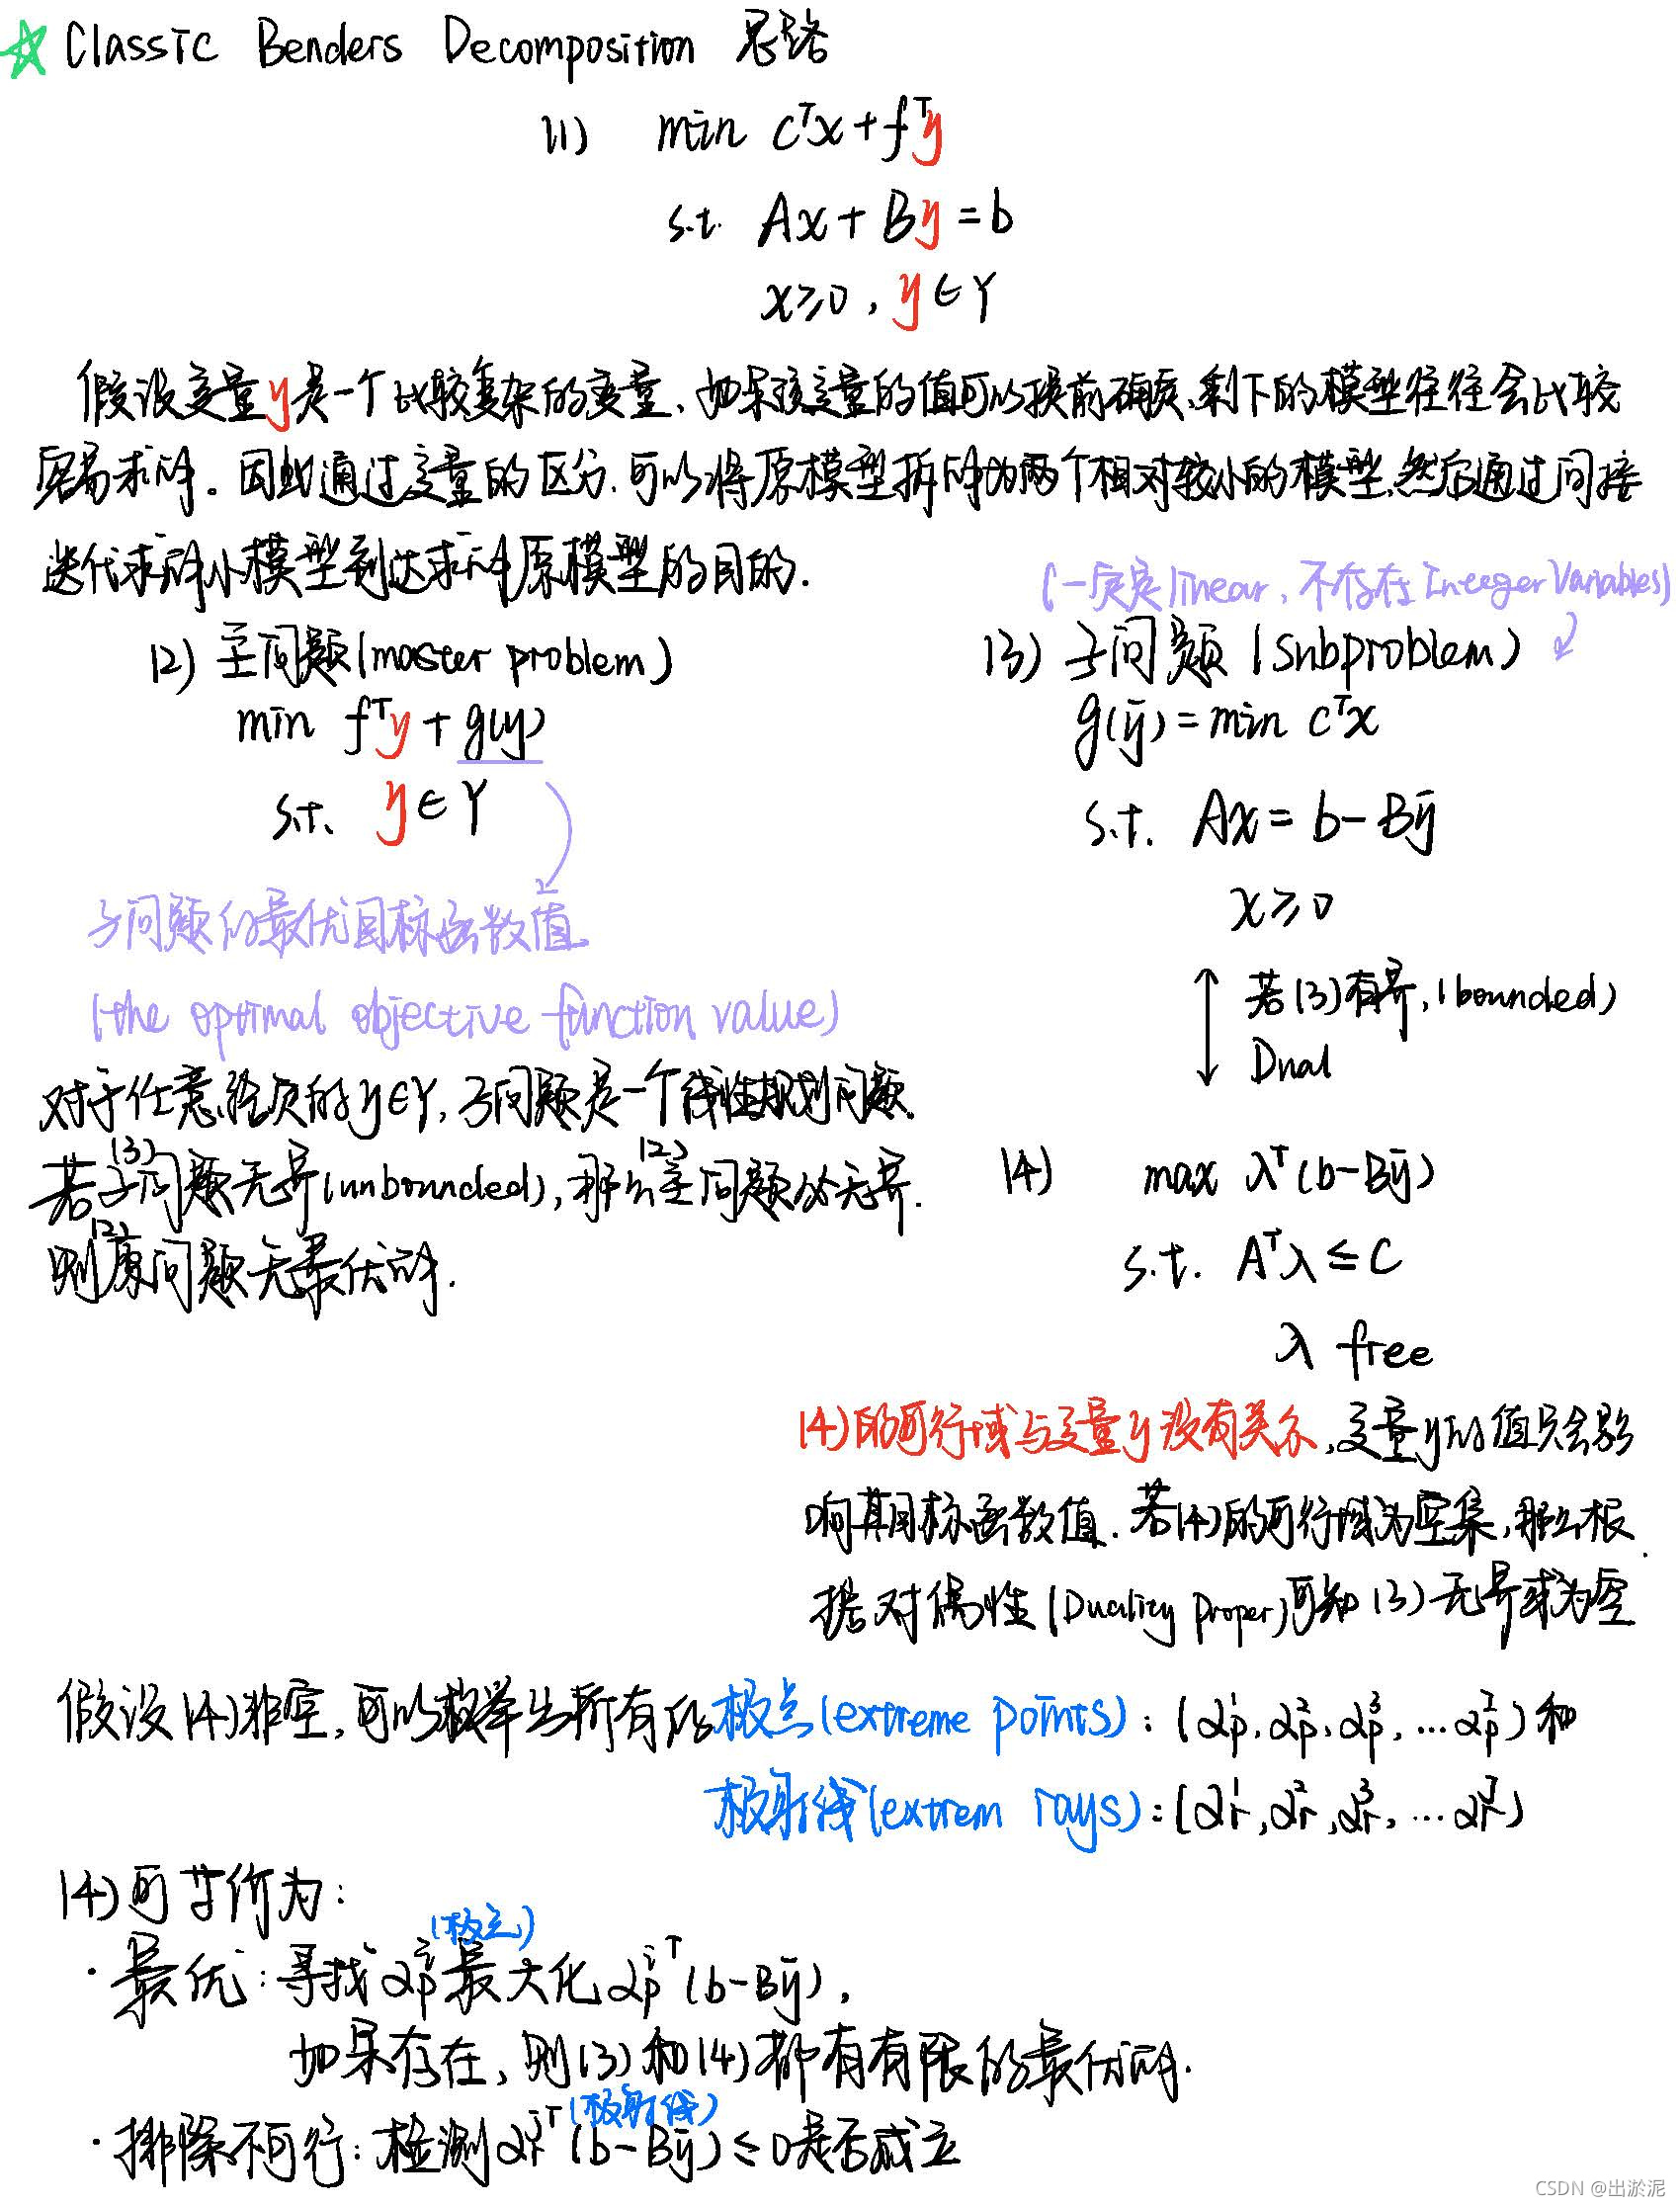 ☆ Classic Benders Decomposition 思路
(1) min cᵀx + fᵀy
s.t. Ax + By = b
x ≥ 0, y ∈ Y
假设变量y是一个比较复杂的变量,如果该变量的值可以提前确定,剩下的模型往往会比较
容易求解。因此通过变量的区分,可以将原模型拆解为两个相对较小的模型,然后通过间接
迭代求解小模型到达求解原模型的目的.
(一定是linear,不存在Integer Variables)
(2) 主问题(master problem)
min fᵀy + g(y)
s.t. y ∈ Y
子问题的最优目标函数值
(the optimal objective function value)
对于任意给定的y∈Y,子问题是一个线性规划问题.
若子问题(3)无界(unbounded),那么主问题(2)必无界.
则原问题(2)无最优解.
(3) 子问题(Subproblem)
g(ȳ) = min cᵀx
s.t. Ax = b - Bȳ
x ≥ 0
若(3)有界,(bounded)
Dual
(4) max λᵀ(b-Bȳ)
s.t. Aᵀλ ≤ C
λ free
(4)的可行域与变量y没有关系,变量y的值只会影
响其目标函数值.若(4)的可行域为空集,那么根
据对偶性(Duality Proper)可知(3)无界或为空
假设(4)非空,可以枚举出所有的极点(extreme points):(αₚ¹,αₚ²,αₚ³,...αₚᴵ)和
极射线(extrem rays):(αᵣ¹,αᵣ²,αᵣ³,...αᵣᴶ)
(4)可等价为:
(极点)
·最优:寻找αₚⁱ最大化αₚⁱᵀ(b-Bȳ),
如果存在,则(3)和(4)都有有限的最优解.
(极射线)
·排除不可行:检测αᵣʲᵀ(b-Bȳ)≤0是否成立
CSDN @出淤泥